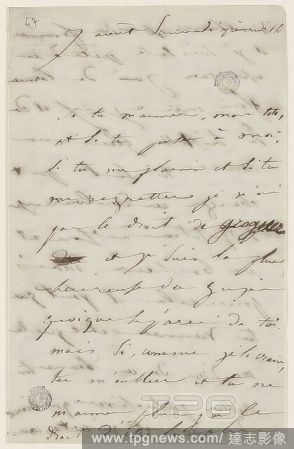 47
7 avril Samedi après midi
Si tu m'aimes, mon toto,
et si tu penses à moi,
si tu me plains et si tu
me regrettes je n'ai
pas le droit de grogner
et je suis la plus
heureuse du
quoique séparée de toi
mais si, comme je le crains,
tu m'oublies et tu ne
m'aimes plus j'ai le
droit
TPG
www.tpgnews.com / 達志影像